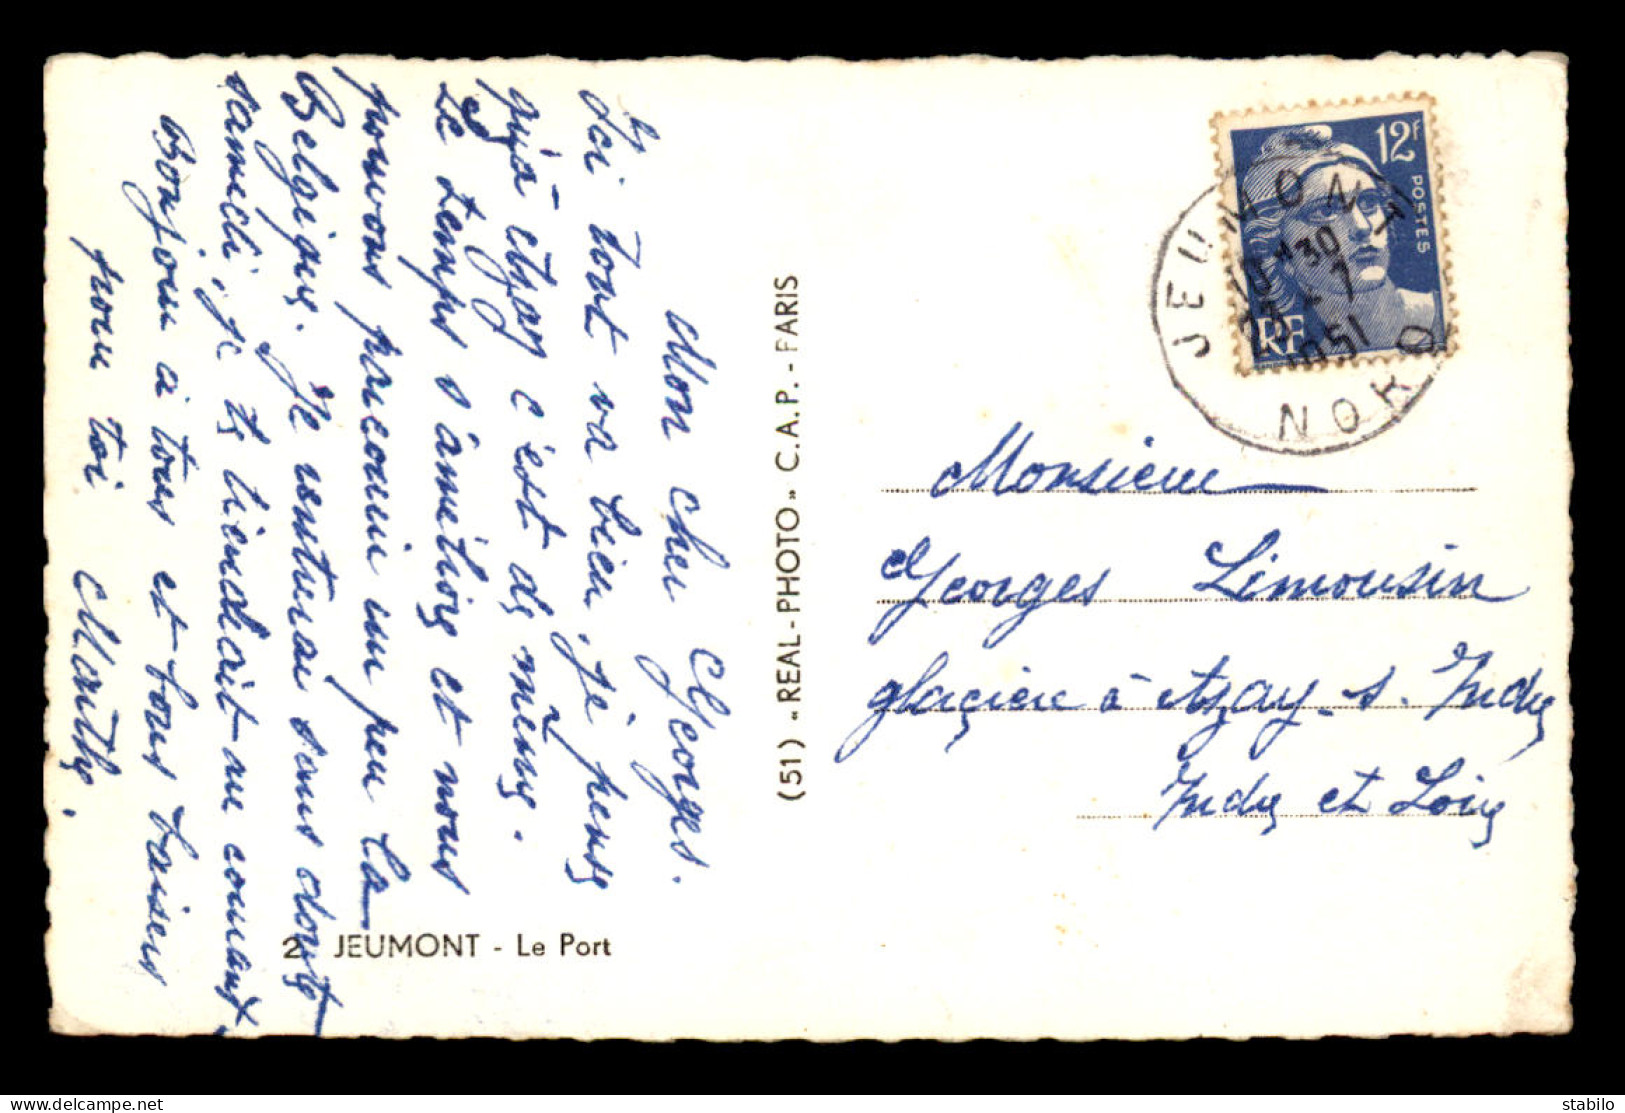 Mon cher Georges.
Ici tout va bien, je pense
qu'à Azay c'est de même.
Le temps s'améliore et nous
pouvons parcourir un peu la
Belgique. Je rentrerai sans doute
samedi, je te tiendrait au courant,
Bonjour à tous et bons baisers
pour toi Marthe.
2. JEUMONT - Le Port
(51) « REAL-PHOTO » C.A.P. - PARIS
12F
POSTES
RF
JEUMONT
10H30
23 - 7
1951
NORD
Monsieur
Georges Limousin
glacière à Azay-s. Indre
Indre et Loire
stabilo
delcampe.net